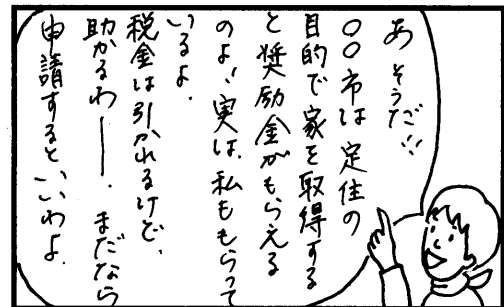 あ そうだ!!
○○市は 定住の
目的で家を取得する
と奨励金がもらえる
のよ、実は、私ももらって
いるよ.
税金は引かれるけど、
助かるわー. まだなら
申請するといいわよ.